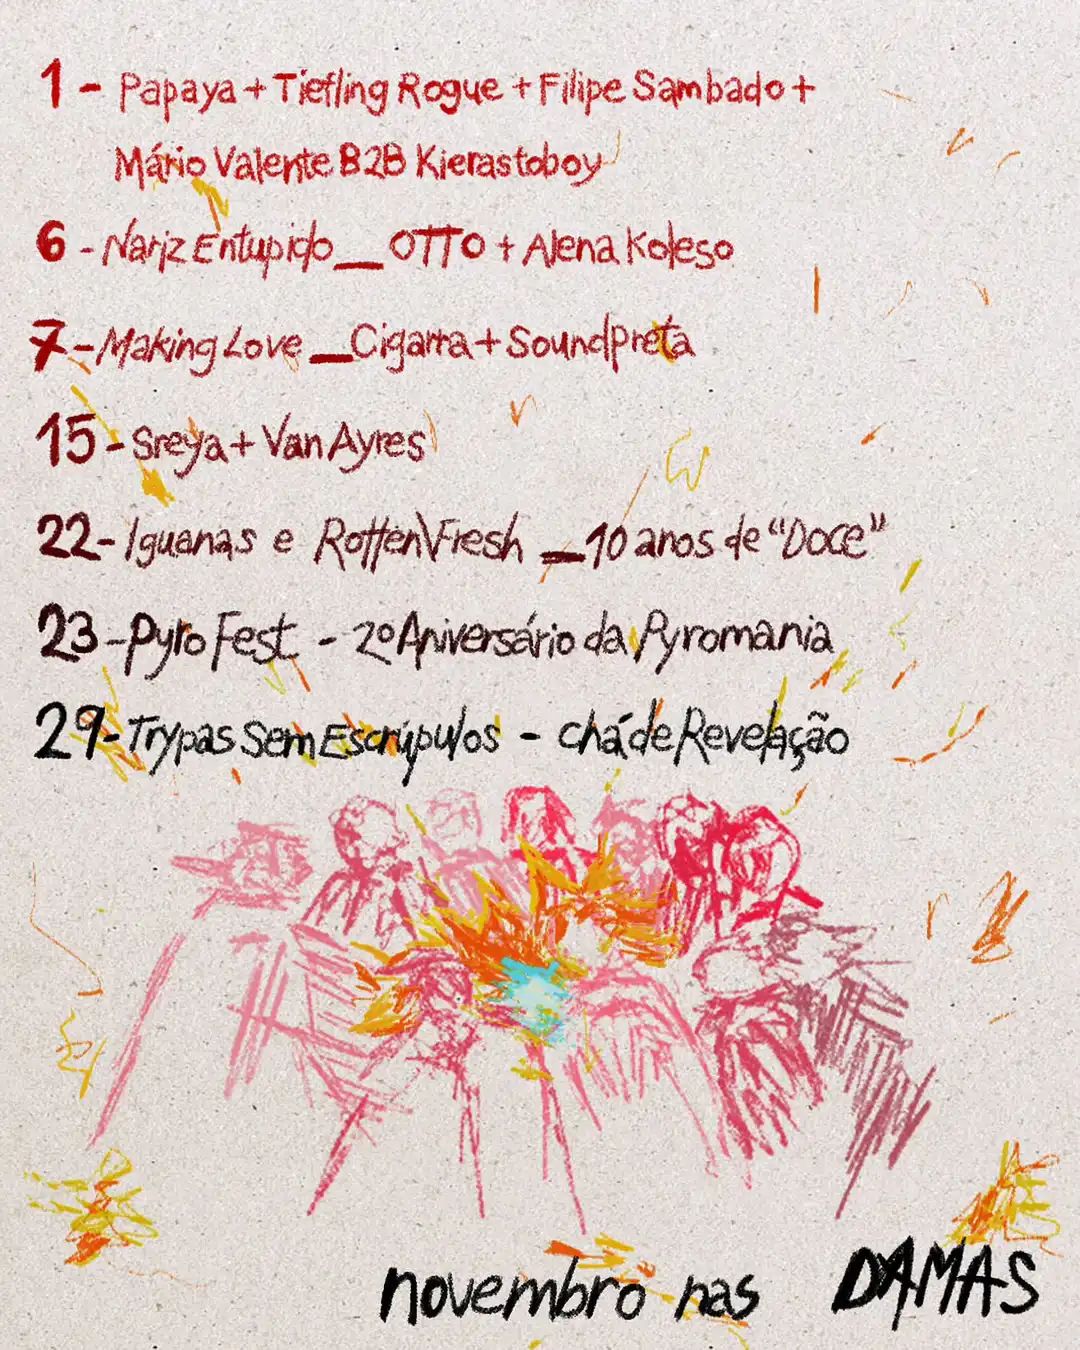 1 - Papaya + Tiefling Rogue + Filipe Sambado +
Mário Valente B2B Kierastoboy
6 - Nariz Entupido _ OTTO + Alena Koleso
7 - Making Love _ Cigarra + Soundpreta
15 - Sreya + Van Ayres
22 - Iguanas e Rotten\Fresh _ 10 anos de "Doce"
23 - Pyro Fest - 2º Aniversário da Pyromania
29 - Trypas Sem Escrúpulos - chá de Revelação
novembro nas DAMAS